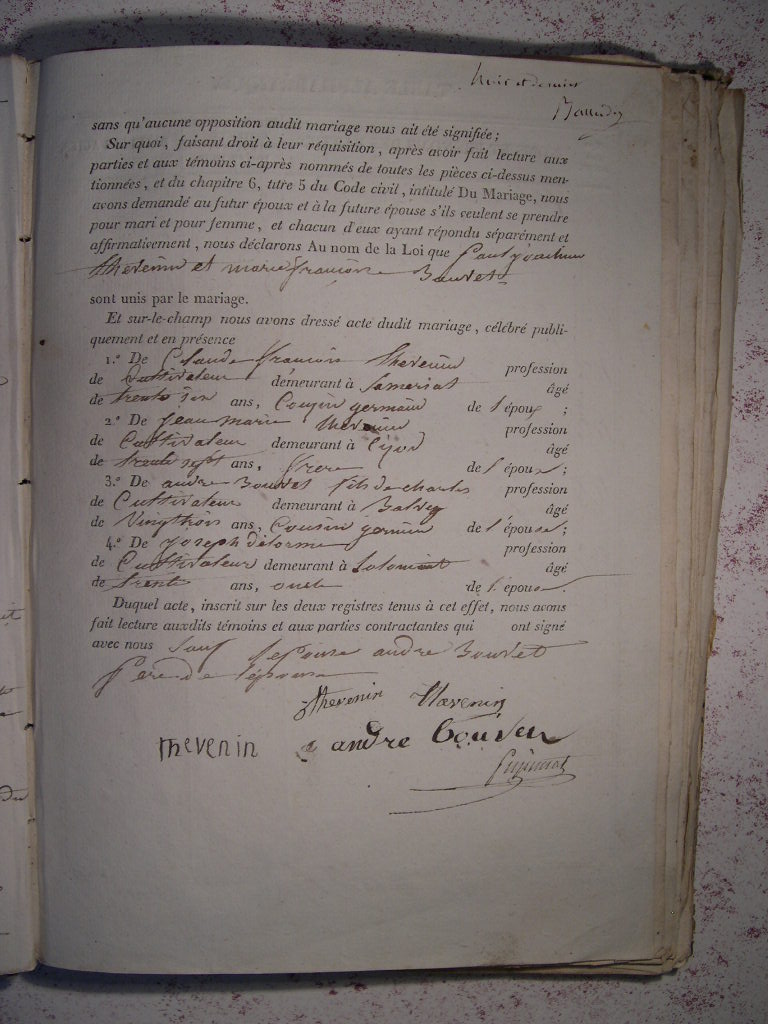 huit et dernier
sans qu'aucune opposition audit mariage nous ait été signifiée ;
Sur quoi, faisant droit à leur réquisition, après avoir fait lecture aux
parties et aux témoins ci-après nommés de toutes les pièces ci-dessus men-
tionnées, et du chapitre 6, titre 5 du Code civil, intitulé Du Mariage, nous
avons demandé au futur époux et à la future épouse s'ils veulent se prendre
pour mari et pour femme, et chacun d'eux ayant répondu séparément et
affirmativement, nous déclarons Au nom de la Loi que Paul joachim
thevenin et marie françoise Bouvet
sont unis par le mariage.
Et sur-le-champ nous avons dressé acte dudit mariage, célébré publi-
quement et en présence
1.º De Claude françois thevenin profession
de Cultivateur demeurant à Samoriat âgé
de trente six ans, Cousin germain de l'époux ;
2.º De jean marie thevenin profession
de Cultivateur demeurant à Lijon âgé
de trente sept ans, frere de l'époux ;
3.º De andre Bouvet fils de charles profession
de Cultivateur demeurant à Balvay âgé
de Vingt trois ans, Cousin germain de l'épouse ;
4.º De joseph delorme profession
de Cultivateur demeurant à Solomiat âgé
de trente ans, oncle de l'épouse.
Duquel acte, inscrit sur les deux registres tenus à cet effet, nous avons
fait lecture auxdits témoins et aux parties contractantes qui ont signé
avec nous Sauf lepouse andre Bouvet
pere de lépouse
thevenin thevenin
thevenin andre bouvet